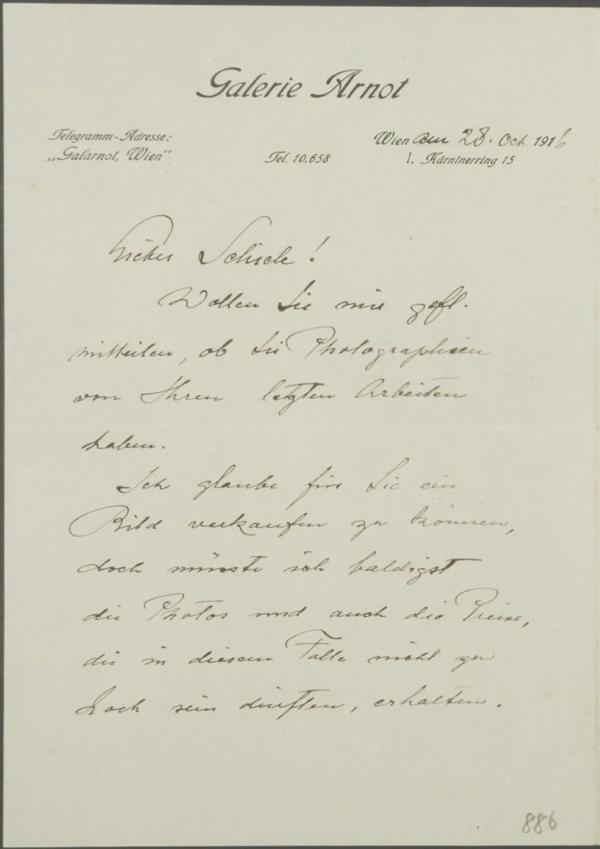 Galerie Arnot
Telegramm-Adresse:
„Galarnot, Wien“
Tel. 10.658
Wien am 28. Oct. 1916
I. Kärntnerring 15
Lieber Schiele!
Wollen Sie mir gefl.
mitteilen, ob Sie Photographien
von Ihren letzten Arbeiten
haben.
Ich glaube für Sie ein
Bild verkaufen zu können,
doch müsste ich baldigst
die Photos und auch die Preise,
die in diesem Falle nicht zu
hoch sein dürften, erhalten.
886